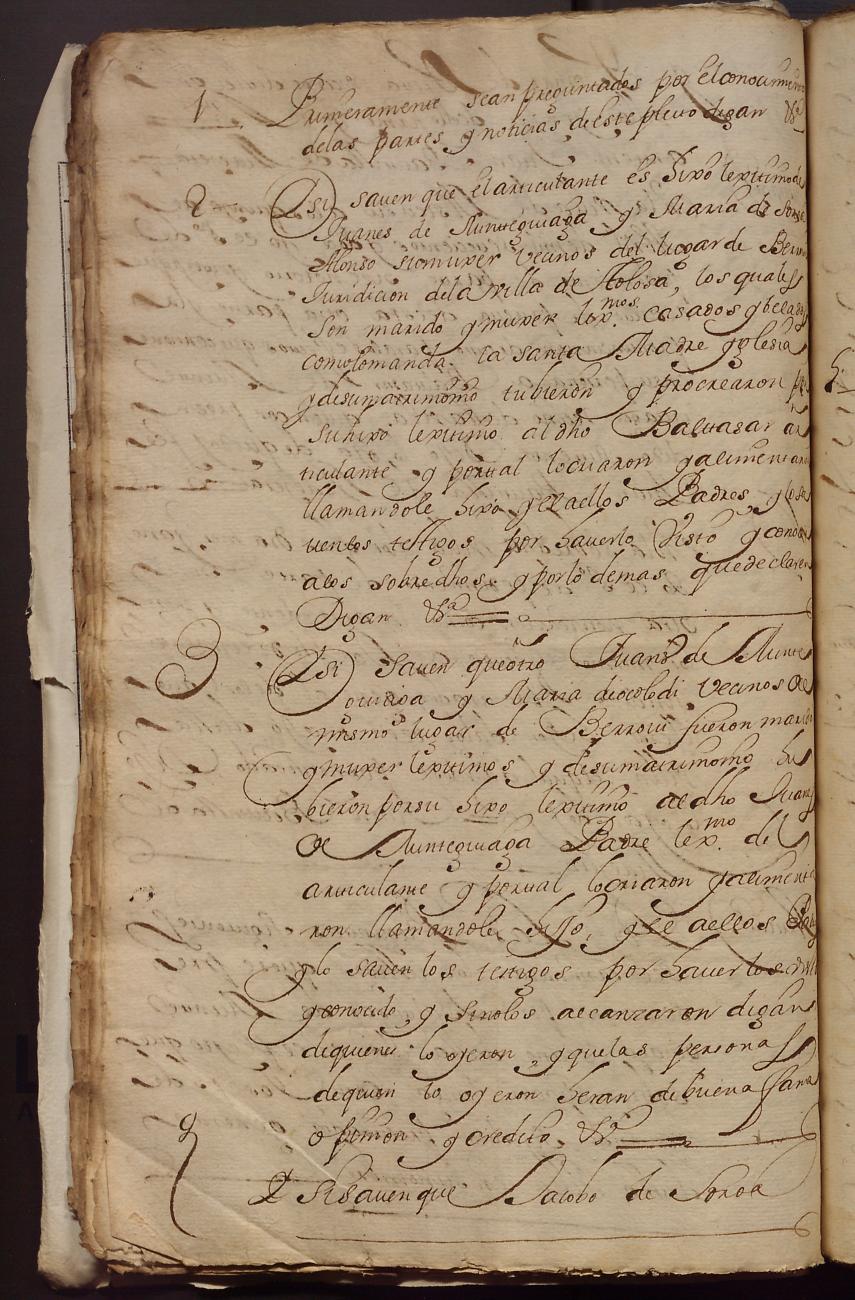 1 Primeramente sean preguntados por el conocimiento
de las partes y noticias de este pleito digan &ª
2 Y si saven que el articulante es hixo lexitimo de
Juanes de Munteguiaga y Maria de
Alonso su muxer vecinos del lugar de
Juridicion de la villa de Tolosa, los quales
son marido y muxer lexmos. casados y belados
como lo manda la santa Madre yglesia
y de su matrimonio tubieron y procrearon por
su hixo lexitimo al dho Balthasar ar
ticulante y por tal lo criaron y alimentaron
llamandole hixo y el a ellos Padres y lo saven
los testigos por haverlo visto y conocido
a los sobredhos y por lo demas que declaren
Digan &ª
3 Y si saven que otro Juanes de Munte
guiaga y Maria de ocolodi vecinos del
mismo lugar de Berrovi fueron marido
y muxer lexitimos y de su matrimonio hu
bieron por su hixo lexitimo al dho Juanes
de Munteguiaga Padre lexmo. del
articulante y por tal lo criaron y alimenta
ron llamandole hijo, y el a ellos Padres
y lo saven los testigos por haverlos visto
y conocido, y si no los alcanzaron digan
de quienes lo oyeron, y que las personas
de quien lo oyeron heran de buena fama
opinion y credito &ª
Y si saven que Jacobo de